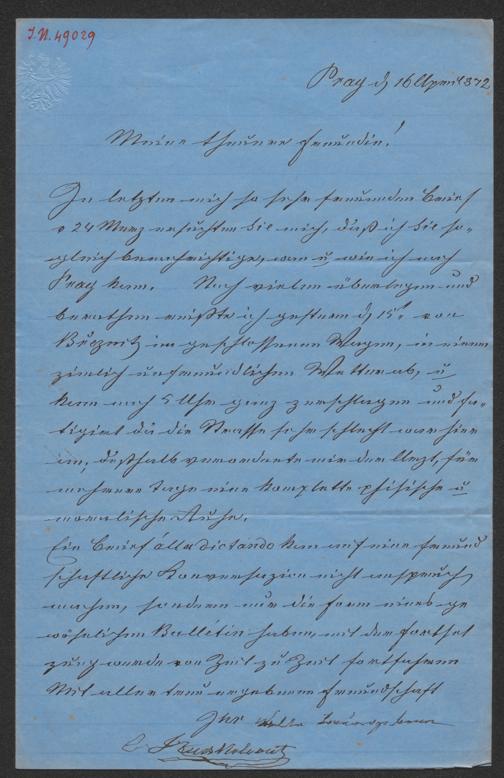 I.N. 49029
Prag d 16 April 872
Meine theuere Freundin!
In letzten mich so sehr freuenden Brief
v 24 März ersuchten Sie mich, daß ich Sie so-
gleich benachrichtige, wan u wie ich nach
Prag kam. Nach vielen überlegen und
berathen reißte ich gestern d 15t von
im geschlossenen Wagen, in einen
zimlich unfreundlichen Wetter ab, u
kam nach 5 Uhr ganz zerschlagen und fa-
tigirt da die Strasse sehr schlecht war hier
an, deßhalb verordnete mir der Arzt, für
mehrere Tage eine komplette phisische u
moralische Ruhe.
Ein Brief álla dictando kan auf eine freund
schaftliche Konversazion nicht anspruch
machen, sondern nur die form eines ge
wöhnlichen Bulletin haben, mit der fortset
zung werde von Zeit zu Zeit fortfahren
Mit aller treu ergebenen Freundschaft
Ihr